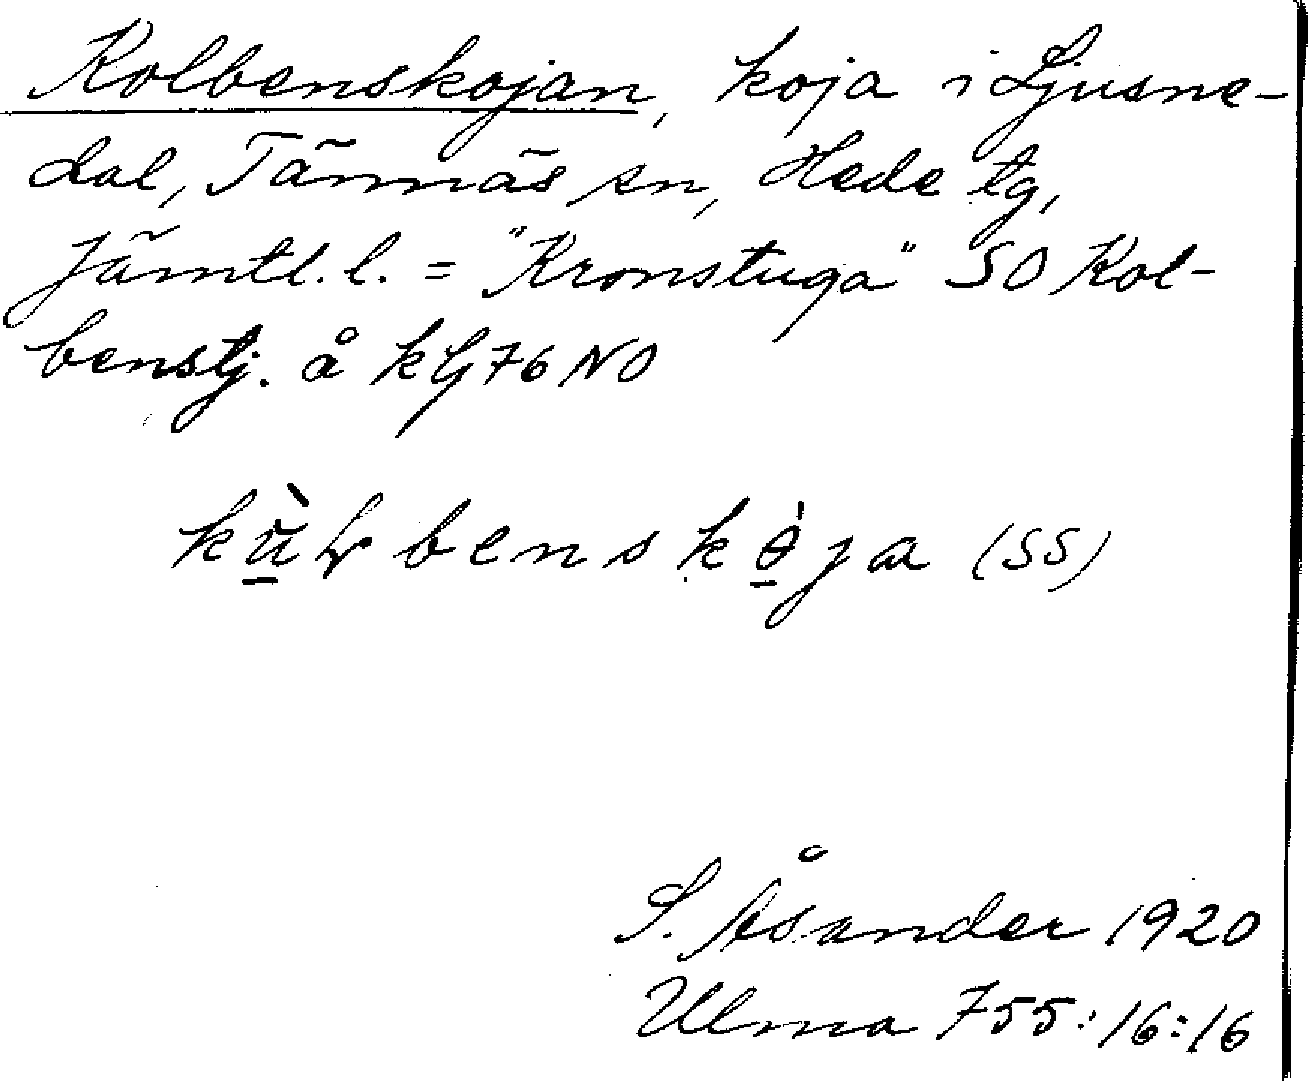 Kolbenskojan, koja i Ljusne-
dal, Tännäs sn, Hede tg,
Jämtl. l. = "Kronstuga" SO Kol-
benstj. å kG 76 NO
(SS)
S. Åsander 1920
Ulma 755:16:16